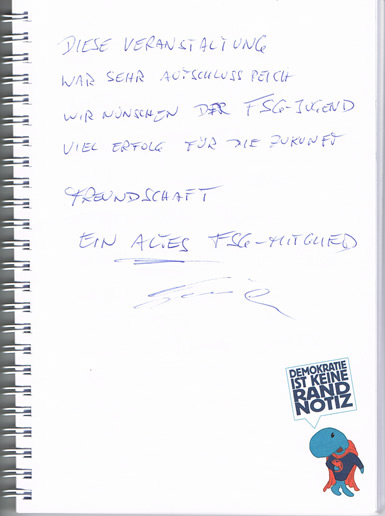 DIESE VERANSTALTUNG
WAR SEHR AUFSCHLUSSREICH
WIR WÜNSCHEN DER FSG-JUGEND
VIEL ERFOLG FÜR DIE ZUKUNFT
FREUNDSCHAFT
EIN ALTES FSG-MITGLIED
DEMOKRATIE
IST KEINE
RAND
NOTIZ